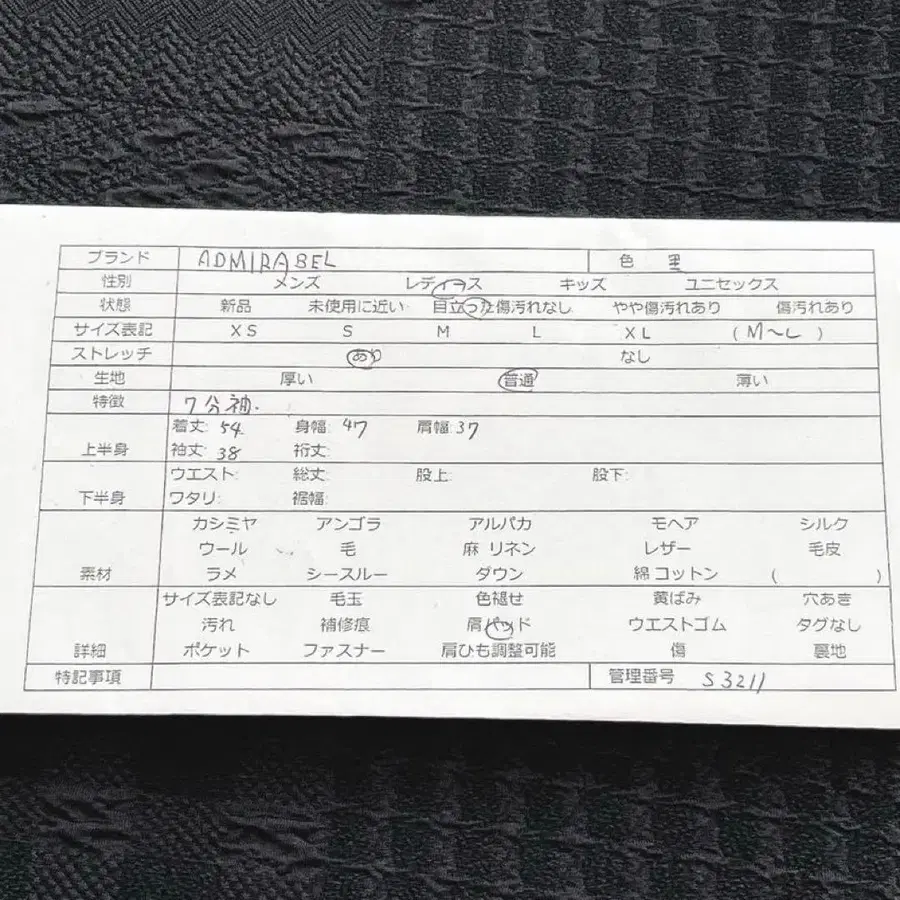 ブランド ADMIRABEL 色 黒
性別 メンズ レディース キッズ ユニセックス
状態 新品 未使用に近い 目立った傷汚れなし やや傷汚れあり 傷汚れあり
サイズ表記 XS S M L XL (M〜L)
ストレッチ あり なし
生地 厚い 普通 薄い
特徴 7分袖.
着丈: 54 身幅: 47 肩幅: 37
上半身 袖丈: 38 裄丈:
ウエスト: 総丈: 股上: 股下:
下半身 ワタリ: 裾幅:
カシミヤ アンゴラ アルパカ モヘア シルク
ウール 毛 麻 リネン レザー 毛皮
素材 ラメ シースルー ダウン 綿 コットン ( )
サイズ表記なし 毛玉 色褪せ 黄ばみ 穴あき
汚れ 補修痕 肩パッド ウエストゴム タグなし
詳細 ポケット ファスナー 肩ひも調整可能 傷 裏地
特記事項 管理番号 S3211